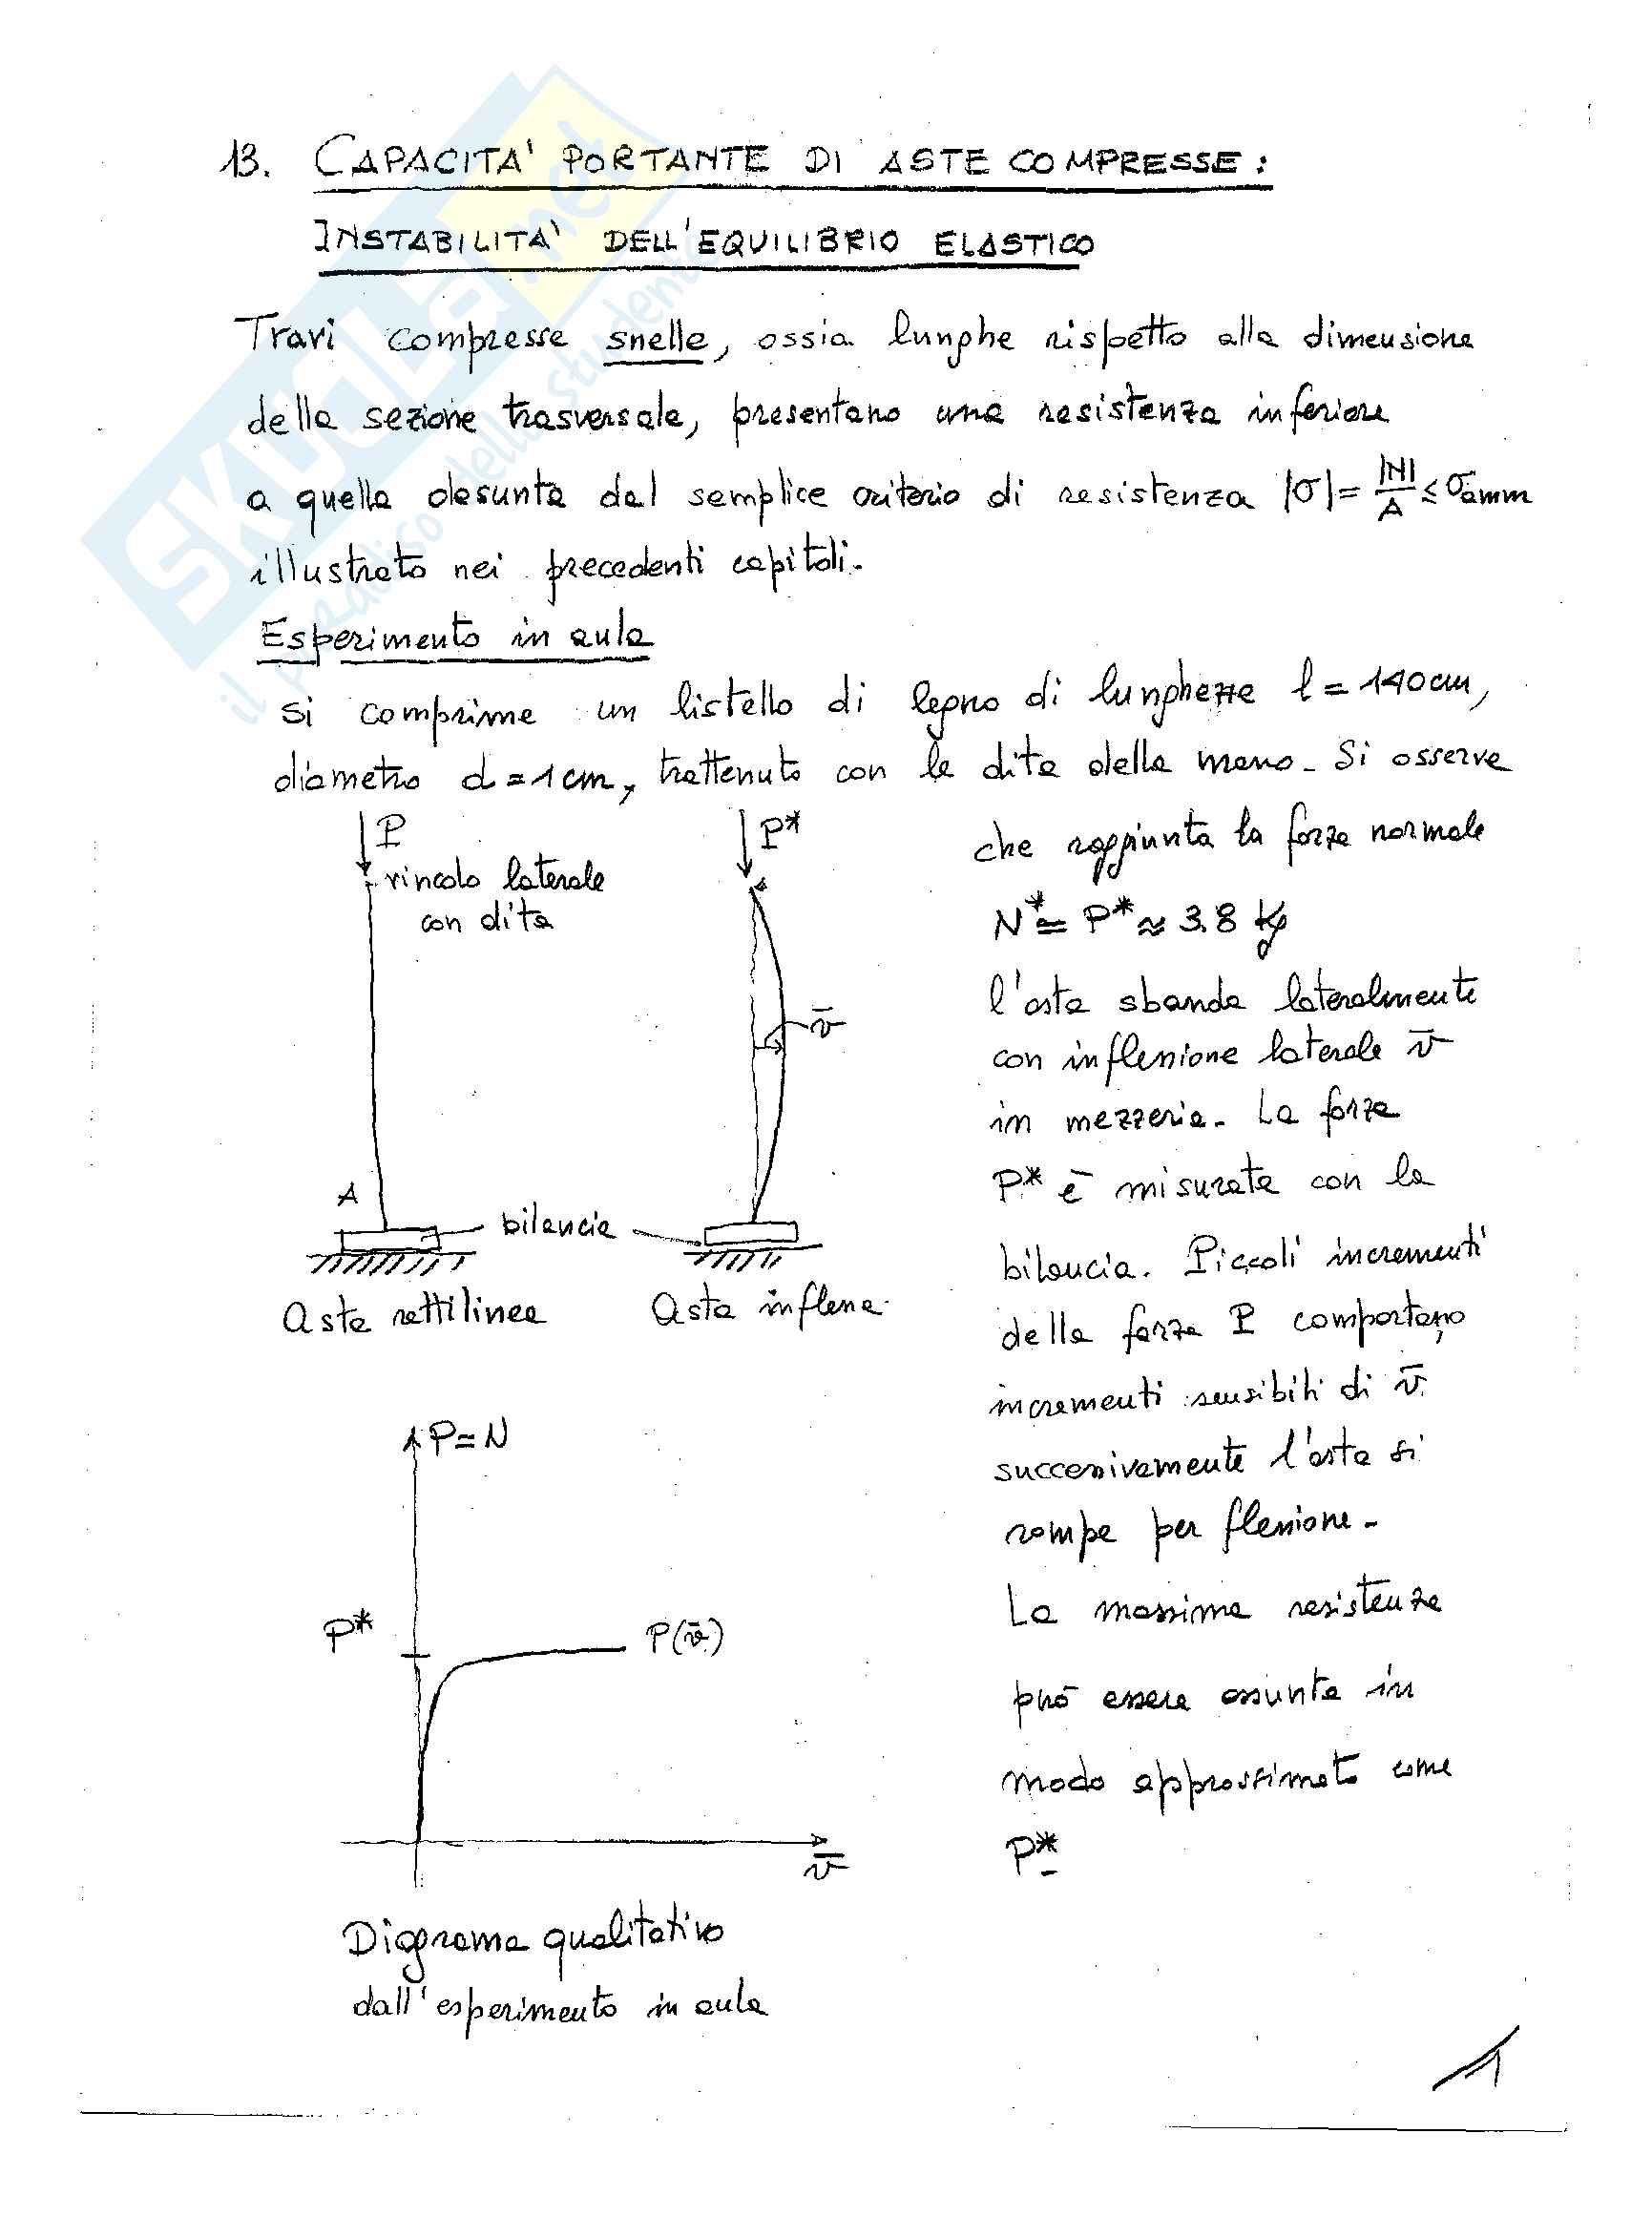 13. CAPACITA' PORTANTE DI ASTE COMPRESSE:
INSTABILITA' DELL'EQUILIBRIO ELASTICO
Travi compresse snelle, ossia lunghe rispetto alla dimensione
della sezione trasversale, presentano una resistenza inferiore
a quella desunta dal semplice criterio di resistenza |σ| = |N|/A ≤ σamm
illustrato nei precedenti capitoli.
Esperimento in aula
si comprime un listello di legno di lunghezza l = 140 cm,
diametro d = 1 cm, trattenuto con le dita della mano. Si osserva
P
vincolo laterale
con dita
A
bilancia
Asta rettilinea
P*
v̄
Asta inflessa
che raggiunta la forza normale
N* ≅ P* ≈ 3.8 Kg
l'asta sbanda lateralmente
con inflessione laterale v̄
in mezzeria. La forza
P* è misurata con la
bilancia. Piccoli incrementi
della forza P comportano
incrementi sensibili di v̄
successivamente l'asta si
rompe per flessione.
La massima resistenza
può essere assunta in
modo approssimato come
P*
P ≃ N
P*
P(v̄)
v̄
Diagramma qualitativo
dall'esperimento in aula
1
SKUOLA.net
il paradiso dello studente